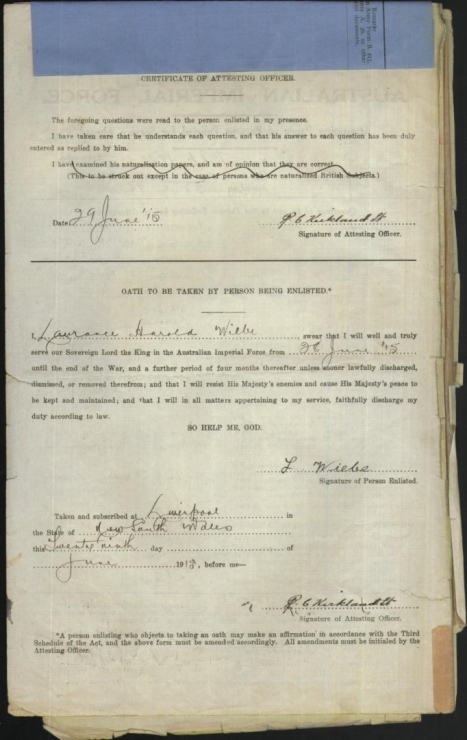 CERTIFICATE OF ATTESTING OFFICER.
The foregoing questions were read to the person enlisted in my presence.
I have taken care that he understands each question, and that his answer to each question has been duly
entered as replied to by him.
I have examined his naturalization papers, and am of opinion that they are correct.
(This to be struck out except in the case of persons who are naturalized British Subjects.)
Date 29 June '15 P C Kirkland Lt
Signature of Attesting Officer.
OATH TO BE TAKEN BY PERSON BEING ENLISTED.*
I, Laurance Harold Wilbe swear that I will well and truly
serve our Sovereign Lord the King in the Australian Imperial Force from June '15
until the end of the War, and a further period of four months thereafter unless sooner lawfully discharged,
dismissed, or removed therefrom; and that I will resist His Majesty's enemies and cause His Majesty's peace to
be kept and maintained; and that I will in all matters appertaining to my service, faithfully discharge my
duty according to law.
SO HELP ME, GOD.
L Wilbe
Signature of Person Enlisted.
Taken and subscribed at Liverpool in
the State of New South Wales
this Twenty ninth day of
June 1915, before me—
P C Kirkland Lt
Signature of Attesting Officer.
*A person enlisting who objects to taking an oath may make an affirmation in accordance with the Third
Schedule of the Act, and the above form must be amended accordingly. All amendments must be initialed by the
Attesting Officer.